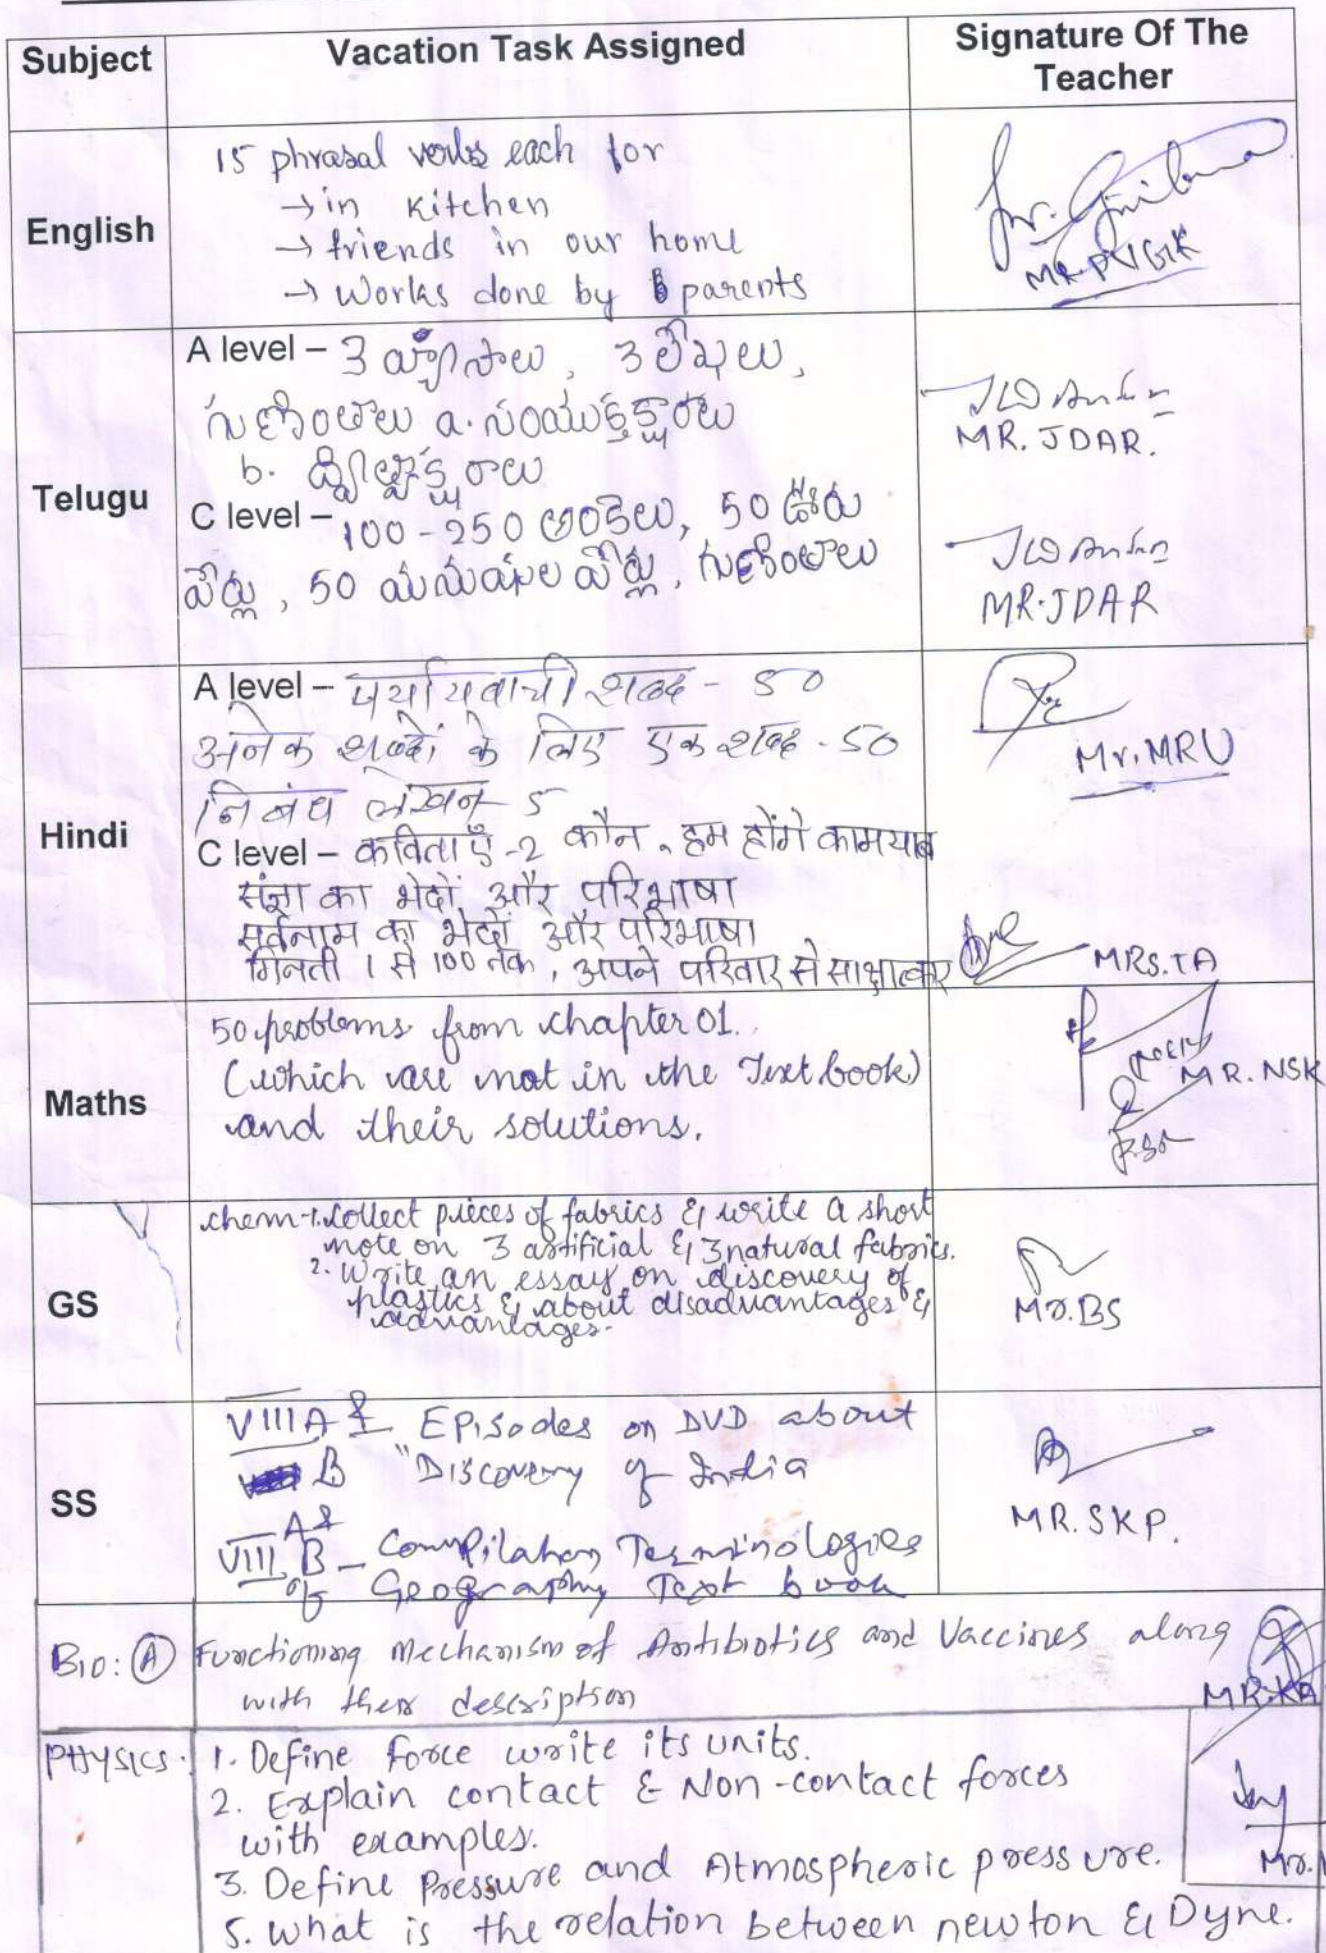 Subject Vacation Task Assigned Signature Of The Teacher
English
15 phrasal verbs each for
→ in kitchen
→ friends in our home
→ works done by parents
MR. PVGK
Telugu
A level – 3 వ్యాసాలు, 3 లేఖలు,
గుణింతాలు a. సంయుక్తాక్షరాలు
b. ద్విత్వాక్షరాలు
MR. JDAR.
C level – 100-250 అంకెలు, 50 ఊరు
పేర్లు, 50 పేర్లు, గుణింతాలు
MR. JDAR
Hindi
A level – पर्यायवाची शब्द - 50
अनेक शब्दों के लिए एक शब्द - 50
निबंध लेखन - 5
Mr. MRU
C level – कविताएँ - 2 कौन, हम होंगे कामयाब
संज्ञा का भेदों और परिभाषा
सर्वनाम का भेदों और परिभाषा
गिनती 1 से 100 तक, अपने परिवार से साक्षात्कार
MRS. TA
Maths
50 problems from chapter 01.
(which are not in the Text book)
and their solutions.
MR. NSK
GS
chem - 1. Collect pieces of fabrics & write a short
note on 3 artificial & 3 natural fabrics.
2. Write an essay on discovery of
plastics & about disadvantages &
advantages.
Mr. BS
SS
VIII A & B Episodes on DVD about
"Discovery of India
VIII A & B – Compilation Terminologies
of Geography Text book
MR. SKP.
Bio: A Functioning Mechanism of Antibiotics and Vaccines along
with their description
MR. KA
PHYSICS. 1. Define force write its units.
2. Explain contact & Non-contact forces
with examples.
3. Define Pressure and Atmospheric pressure.
5. What is the relation between newton & Dyne.
Mr.